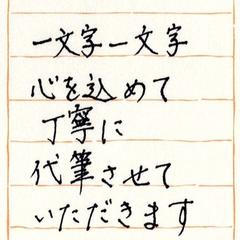 一文字一文字
心を込めて
丁寧に
代筆させて
いただきます